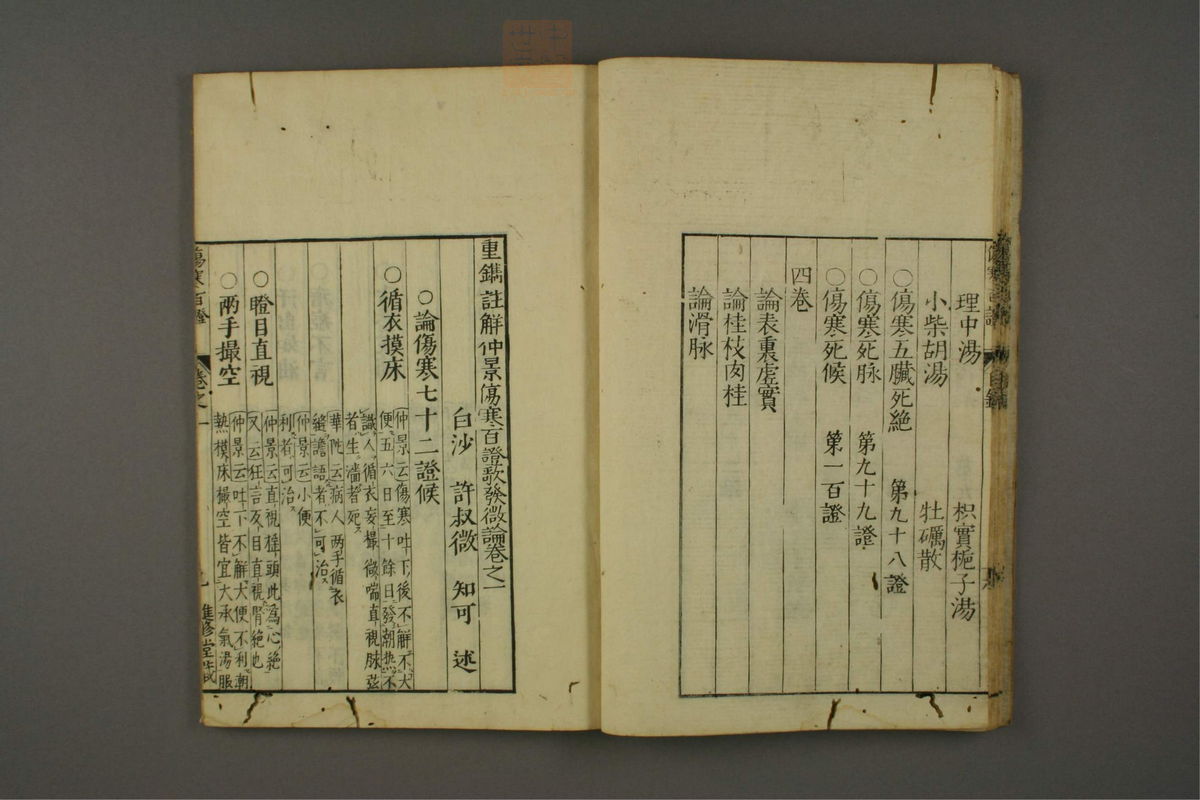 理中湯 枳實梔子湯
小柴胡湯 牡礪散
○傷寒五臟死絶 第九十八證
○傷寒死脉 第九十九證
○傷寒死候 第一百證
四巻
論表裏虚實
論桂枝肉桂
論滑脉
重鐫註解仲景傷寒百證歌發微論卷之一
白沙 許叔微 知可 述
○論傷寒七十二證候
○循衣摸床
仲景云傷寒吐下後不解不大
便五六日至十餘日發潮熱不
識人循衣妄撮微喘直視脉弦
者生濇者死
華陀云病人兩手循衣
縫譫語者不可治
仲景云小便
利者可治
○瞪目直視
仲景云直視揺頭此為心絶
又云狂言反目直視腎絶也
○兩手撮空
仲景云吐下不解大便不利潮
熱模床撮空皆宜大承氣湯服
傷寒百證 卷之一